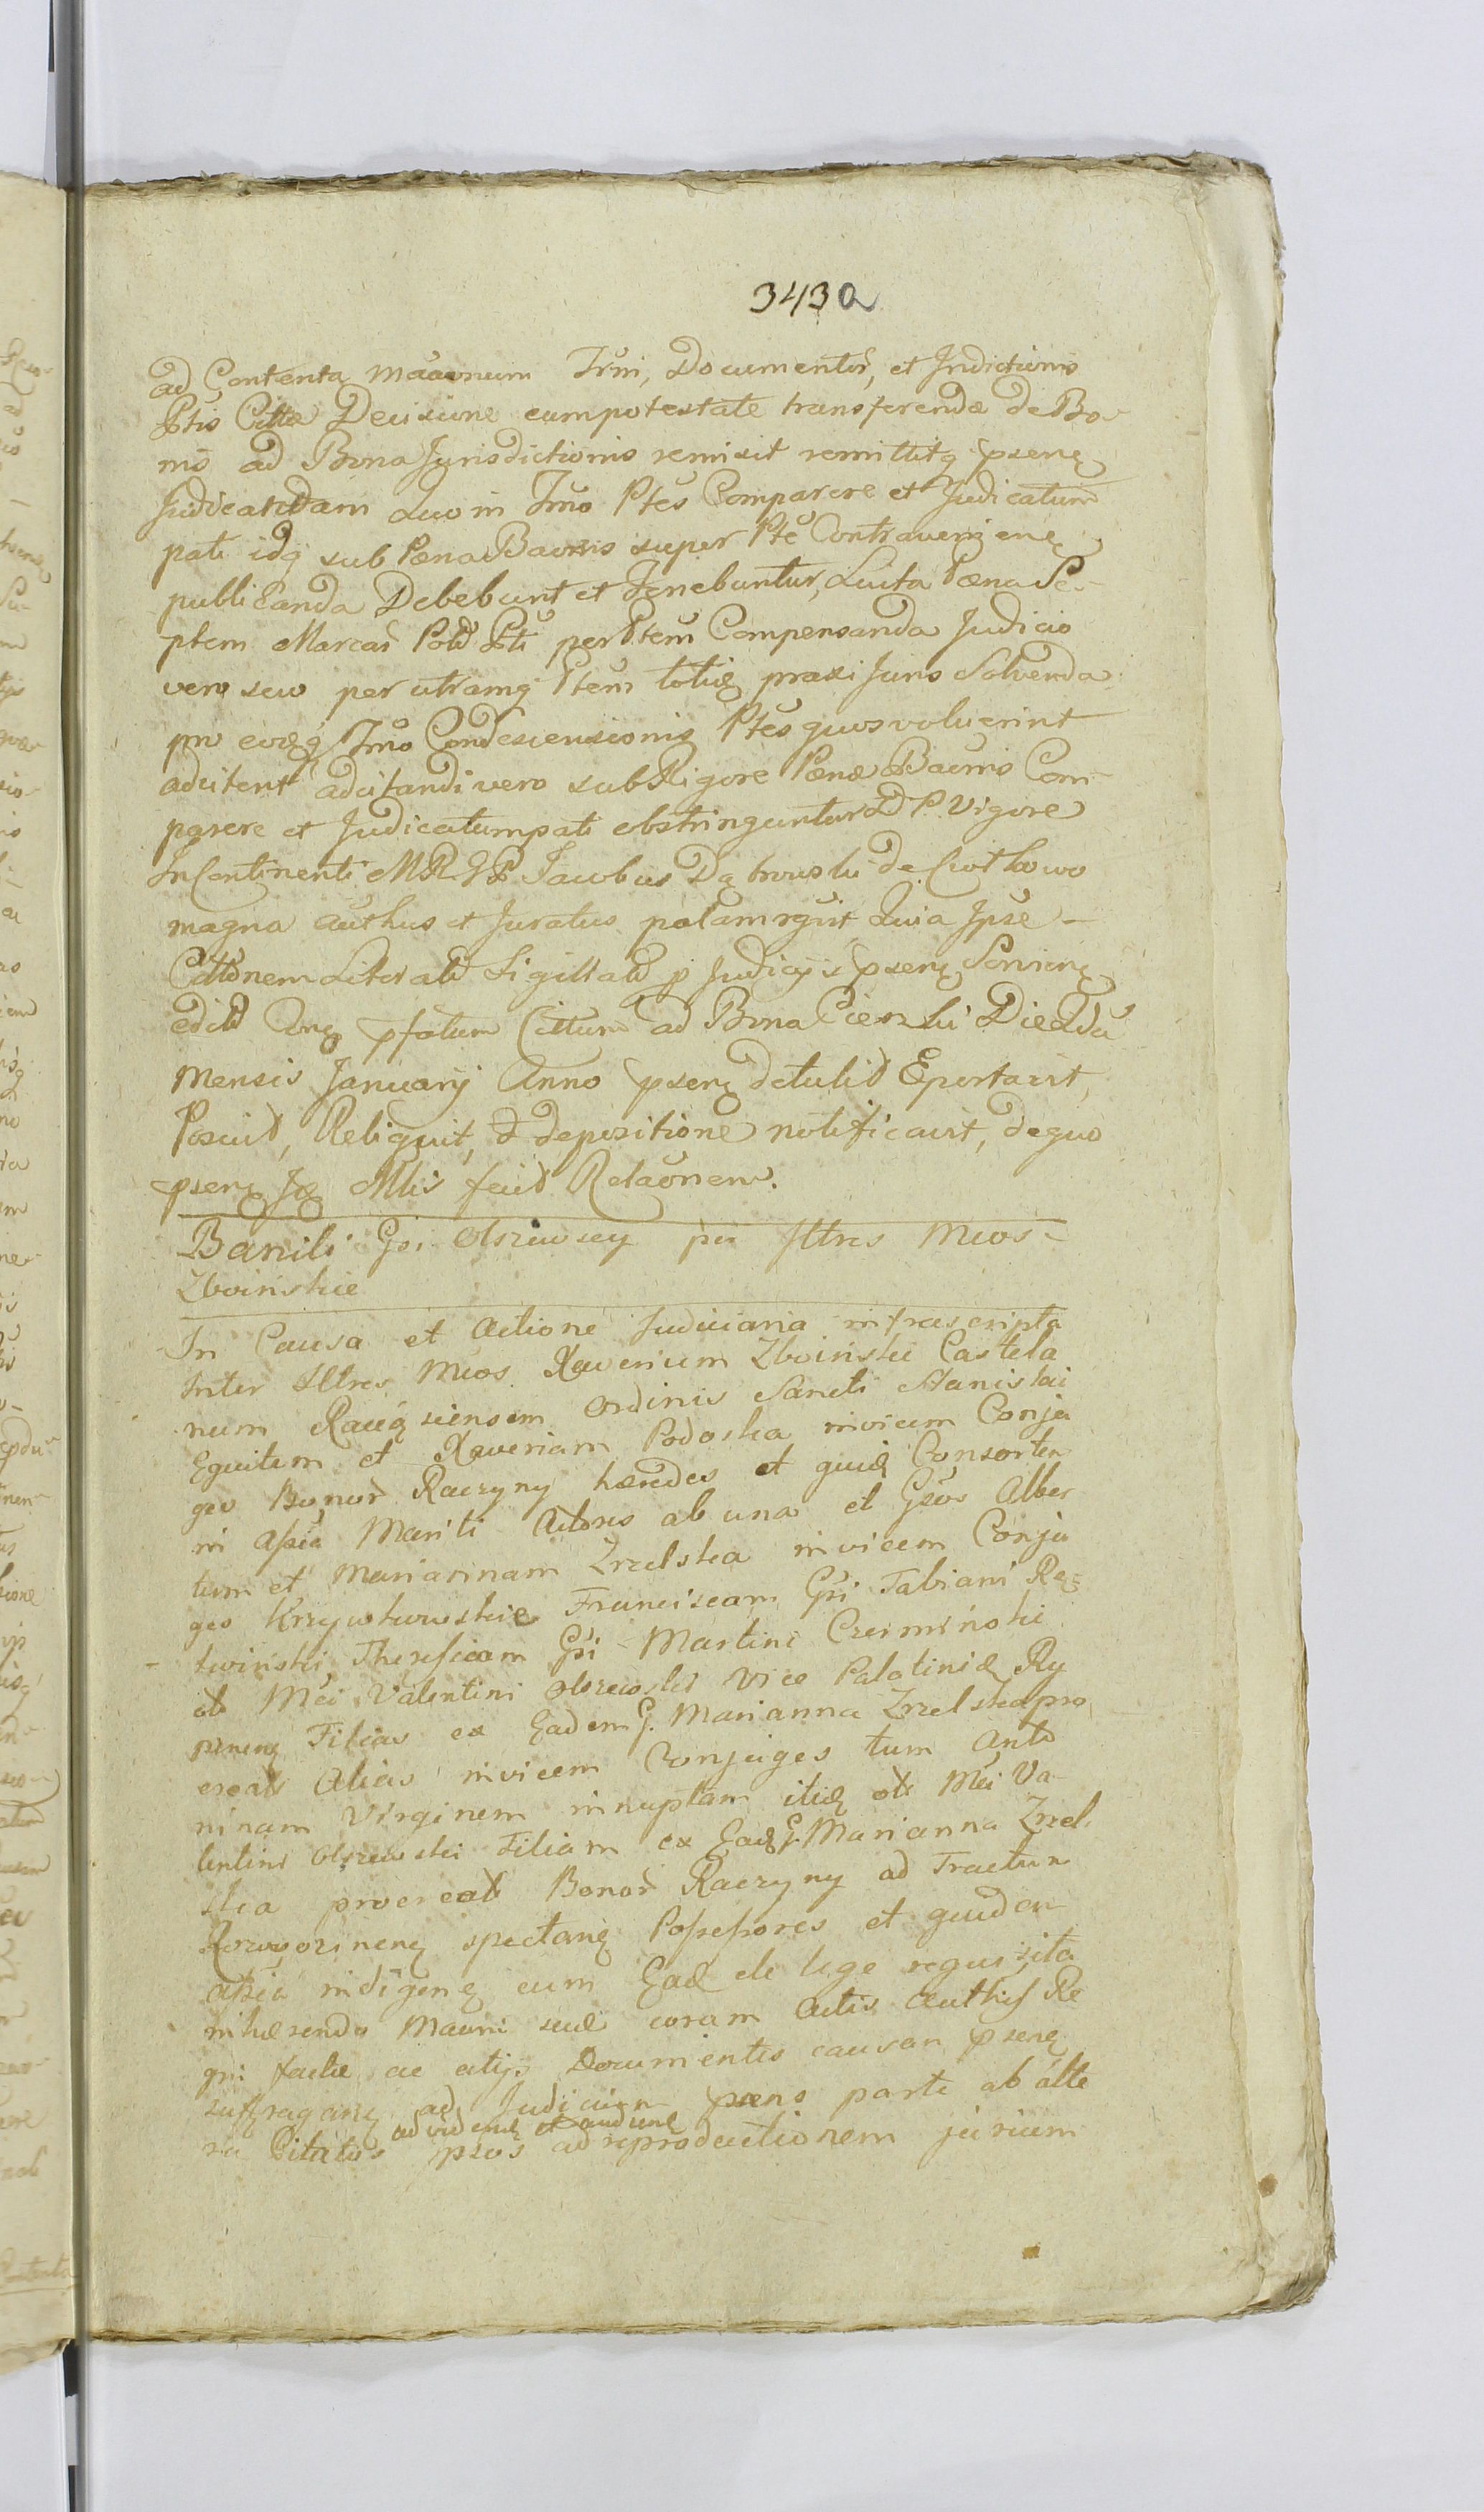 343a
ad Contenta Maăonum Trŭi, Documentoř, et Indictionis
Ptis Cittæ Decisione cum potestate transferendæ de Bo-
nis ad Bona Jurisdictionis remisit remittitq psenę
Judicandam Quo in Tmŏ Ptes Comparere et Judicatum
pati idq sub Pæna Baoňis super Ptĕ Contraveniene
publicanda Debebunt et Tenebuntur, Luita Pæna Se-
ptem Marcař Pold Pti per Ptem Compensanda Judicio
vero suo per utramq Ptem totidę praxi Juris Solvenda
pro eoq Tmŏ Condescensionis Ptes quos voluerint
adcitent adcitandi vero sub Rigore Pænæ Baonis Com-
parere et Judicatum pati obstringuntur D P. Vigore
In Continenti MRJP Jacobus Dąbrowski de
magna authus et Juratus palam rgŭit Quia Ipse -
Cittonem Literald Sigillatd p Judicijs psenę
edild prfatum Cittum ad Bona Die
Mensis January Anno psenę detulid Eportavit,
Poscuid, Reliquit, & depositione notificavit, de quo
psenę Jo Mtis fecid Relaŏnem.
Banili Gsi Olszewscy per Iltres Mcos -
Zboinskie
In Causa et Actione Judiciaria infrascripta
Inter Iltres Mcos Xaverium Zboinski Castela
num Raciąsiensem Ordinis Sancti Stanislai
Equitem et Xaveriam Podoska invicem Conju
ges Bonoř Raczyny hæredes et quid Consortem
in Assia Mariti Actores ab una et Gsos Alber
tum et Mariannam Zrzelska invicem Conju
ges Krzywkowskie Franciscam Gsi Fabiani Re-
twinski, Theresiam Gsi Martini Czerminski
ol Mci Valentini Olszewski Vice Palatinid Ry
pinenę Filias ex Eadem G. Marianna Zrzelska pro
creats Alias invicem Conjuges tum Anto
ninam Virginem innuptam itidę ol Mci Va-
lentini Olszewski Filiam ex Ead G. Marianna Zrzel
ska procreat Bonoř Raczyny ad Tractum
spectanę Possessores et quidem
assia indigenę cum Ead de lege requisita
inhærendo Maoni sud coram Actis authis Re
gni factæ ac alijs Documentis causan psenę
suffraganę ad Judicium psens parti ab alte
ad videnď et audienď
ra Citatos psos ad reproductionem jurium